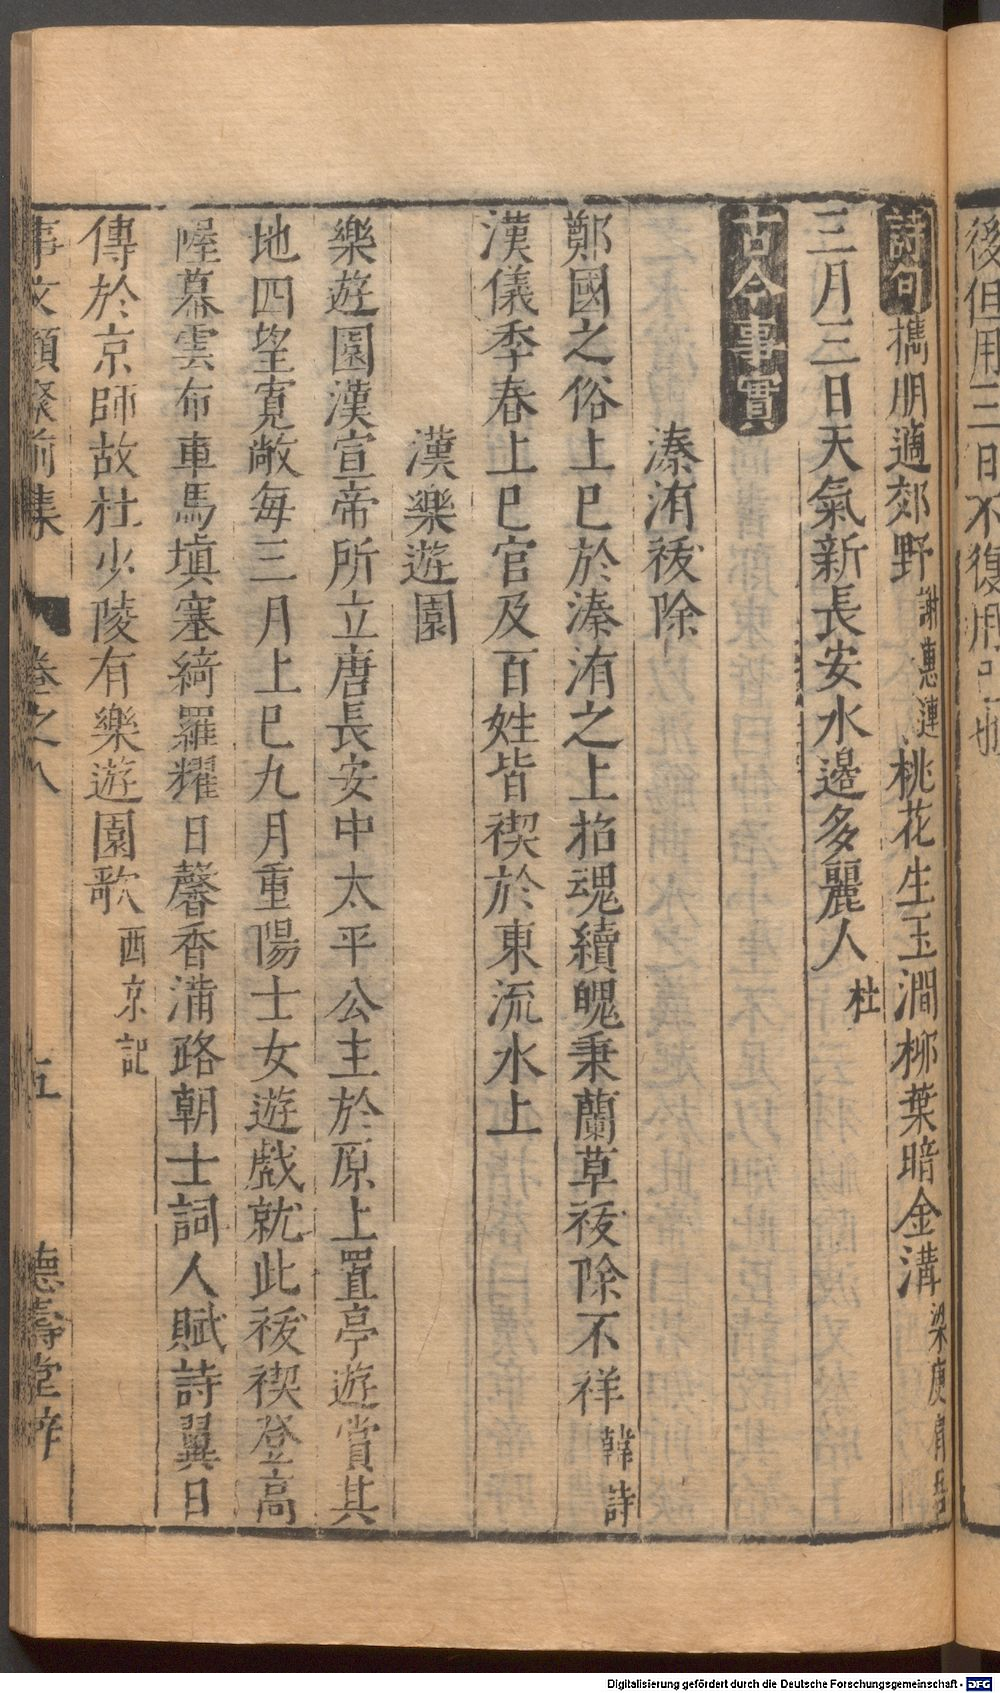 後但用三日不復用巳也
詩句攜朋適郊野謝惠連桃花生玉澗柳葉暗金溝梁庾肩吾
三月三日天氣新長安水邊多麗人杜
古今事實
溱洧祓除
鄭國之俗上巳於溱洧之上招魂續魄秉蘭草祓除不祥韓詩
漢儀季春上巳官及百姓皆禊於東流水上
漢樂遊園
樂遊園漢宣帝所立唐長安中太平公主於原上置亭遊賞其
地四望寬敞每三月上巳九月重陽士女遊戲就此祓禊登高
幄幕雲布車馬塡塞綺羅耀日馨香滿路朝士詞人賦詩翼日
傳於京師故杜少陵有樂遊園歌西京記
事文類聚前集 卷之八 五 德壽堂梓
Digitalisierung gefördert durch die Deutsche Forschungsgemeinschaft - DFG